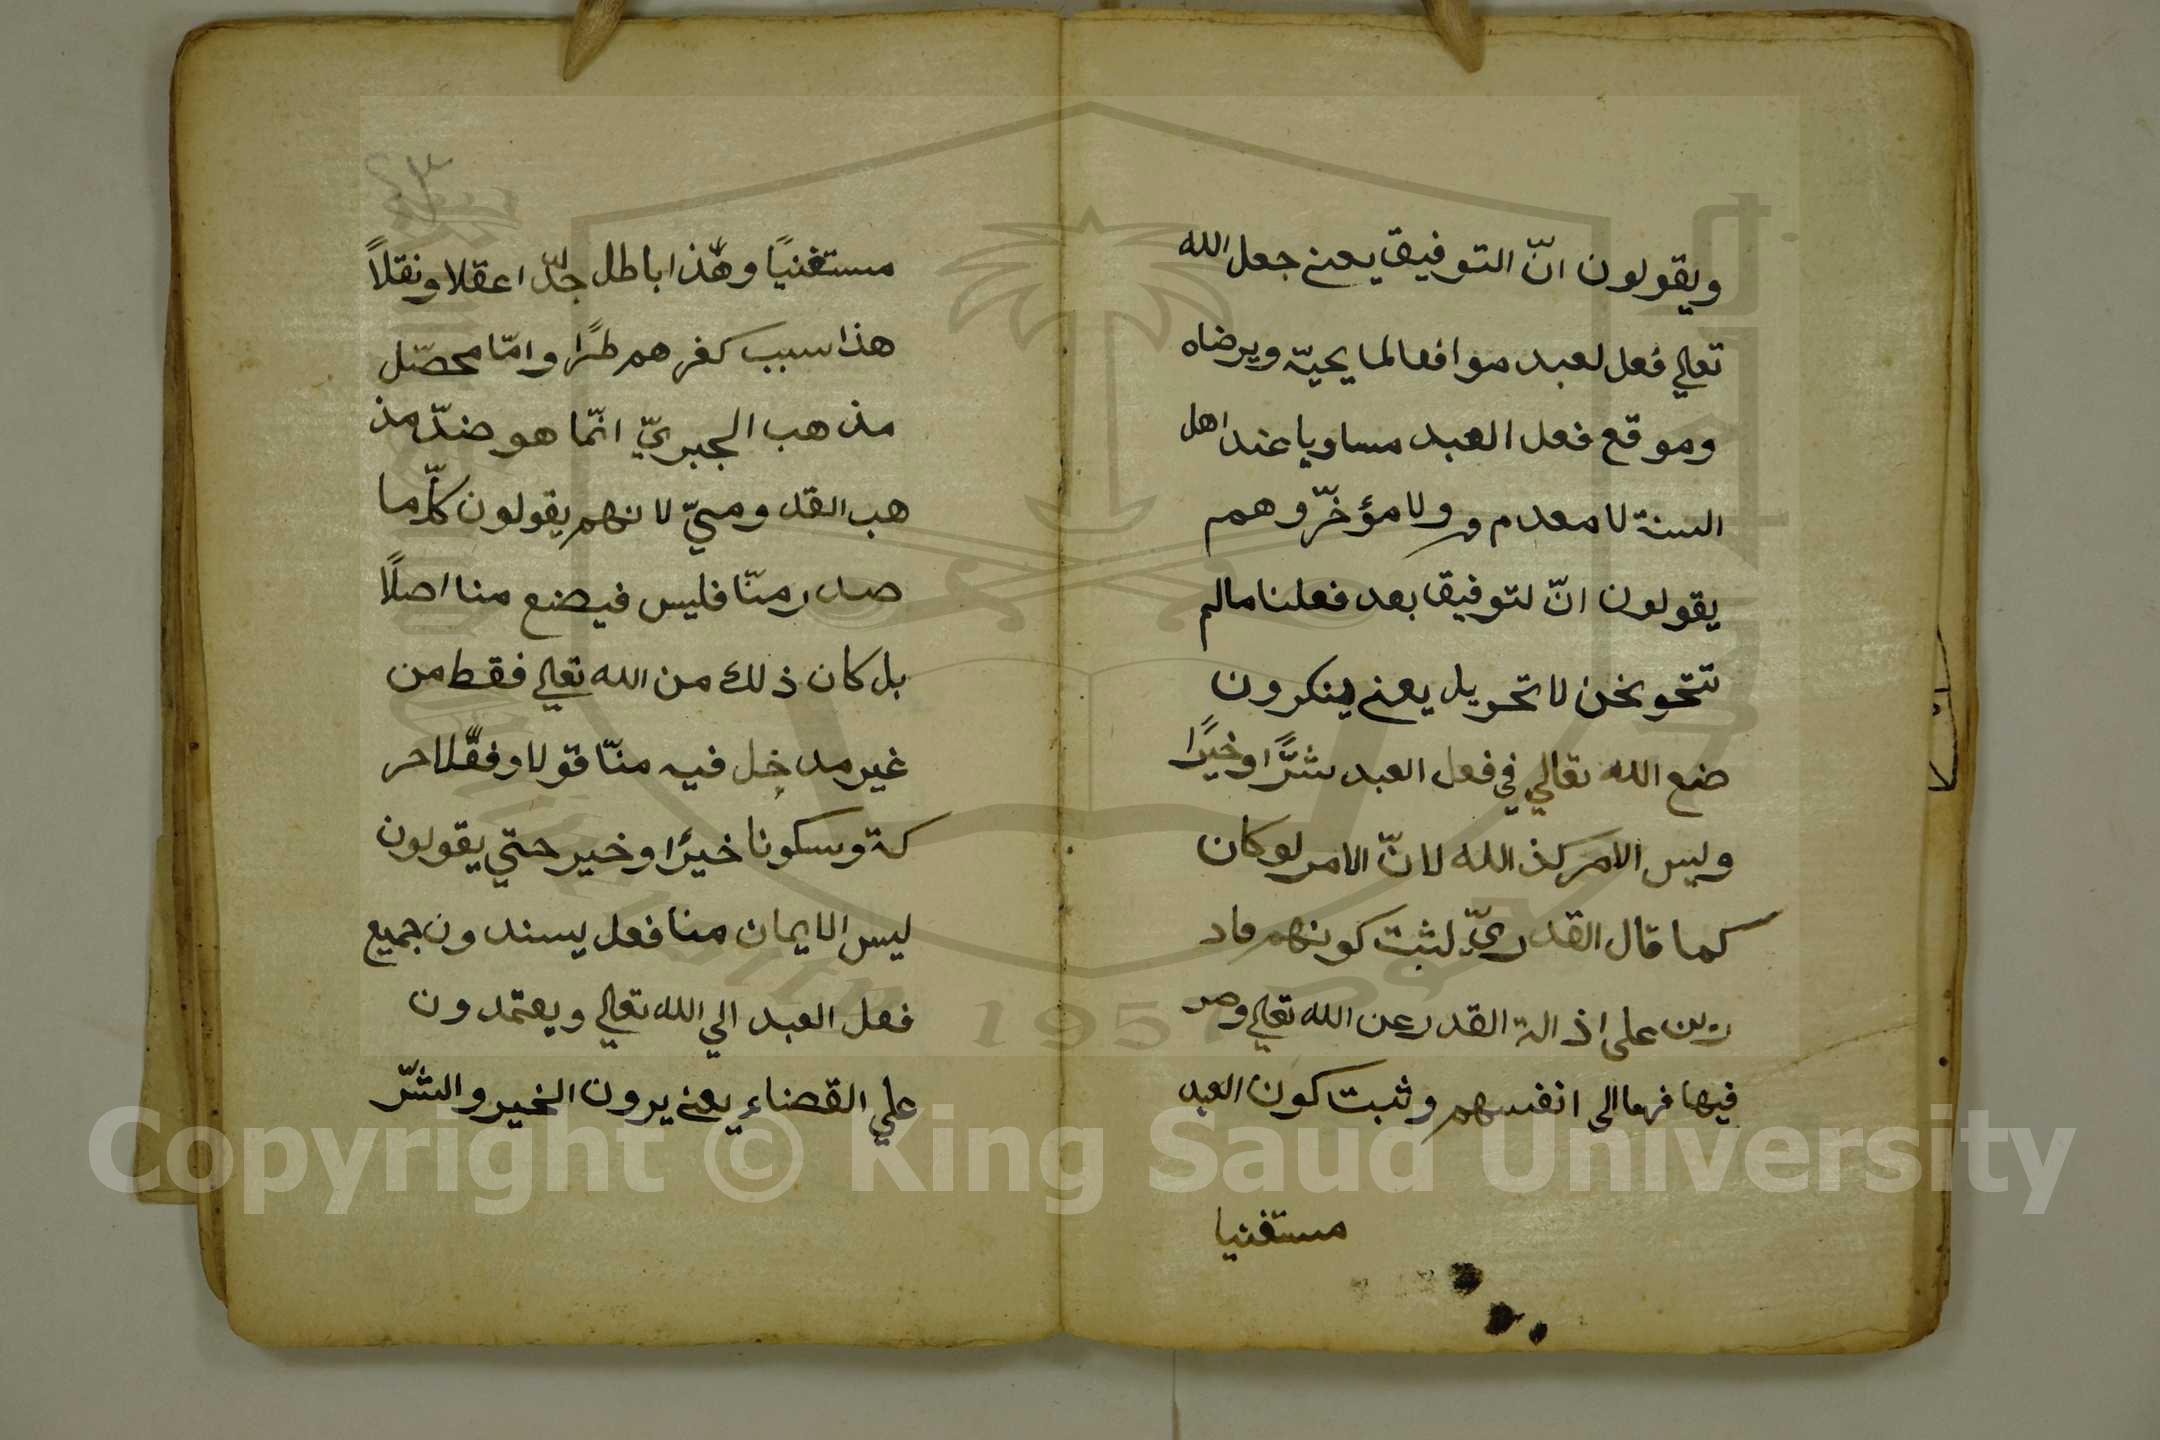 ويقولون انّ التوفيق يعني جعل الله
تعالي فعل لعبد موافعا لما يحبّه ويرضاه
وموقع فعل العبد مساويا عند اهل
السنة لا معدم و ولا مؤخّر وهم
يقولون انّ لتوفيقا بعد فعلنا مالم
نتحو نخن لا تحويل يعني ينكرون
ضع الله تعالي في فعل العبد شرًّا وخيرًا
وليس الامر كذالله لانّ الامر لو كان
كما قال القدريّ لثبت كونهم قاد
رين على اذالة القدر عن الله تعالي وصر
فيها فهما الى انفسهم وثبت كون العبد
مستغنيا
مستغنيًا وهذا باطل جدّا عقلا ونقلاً
هذا سبب كفرهم طرًا وامّا محصّل
مذهب الجبريّ انّما هو ضدّ مذ
هب القدوميّ لانهم يقولون كلّ ما
صدر منّا فليس فيضع منا اصلًا
بل كان ذلك من الله تعالي فقط من
غير مدخل فيه منّا قولا وفقّلا حر
كة وسكونا خيرًا وخير حتي يقولون
ليس الايمان منا فعل يسندون جميع
فعل العبد الي الله تعالي ويعتمدون
علي القضاء يعني يرون الخير والشّر
Copyright © King Saud University
1957